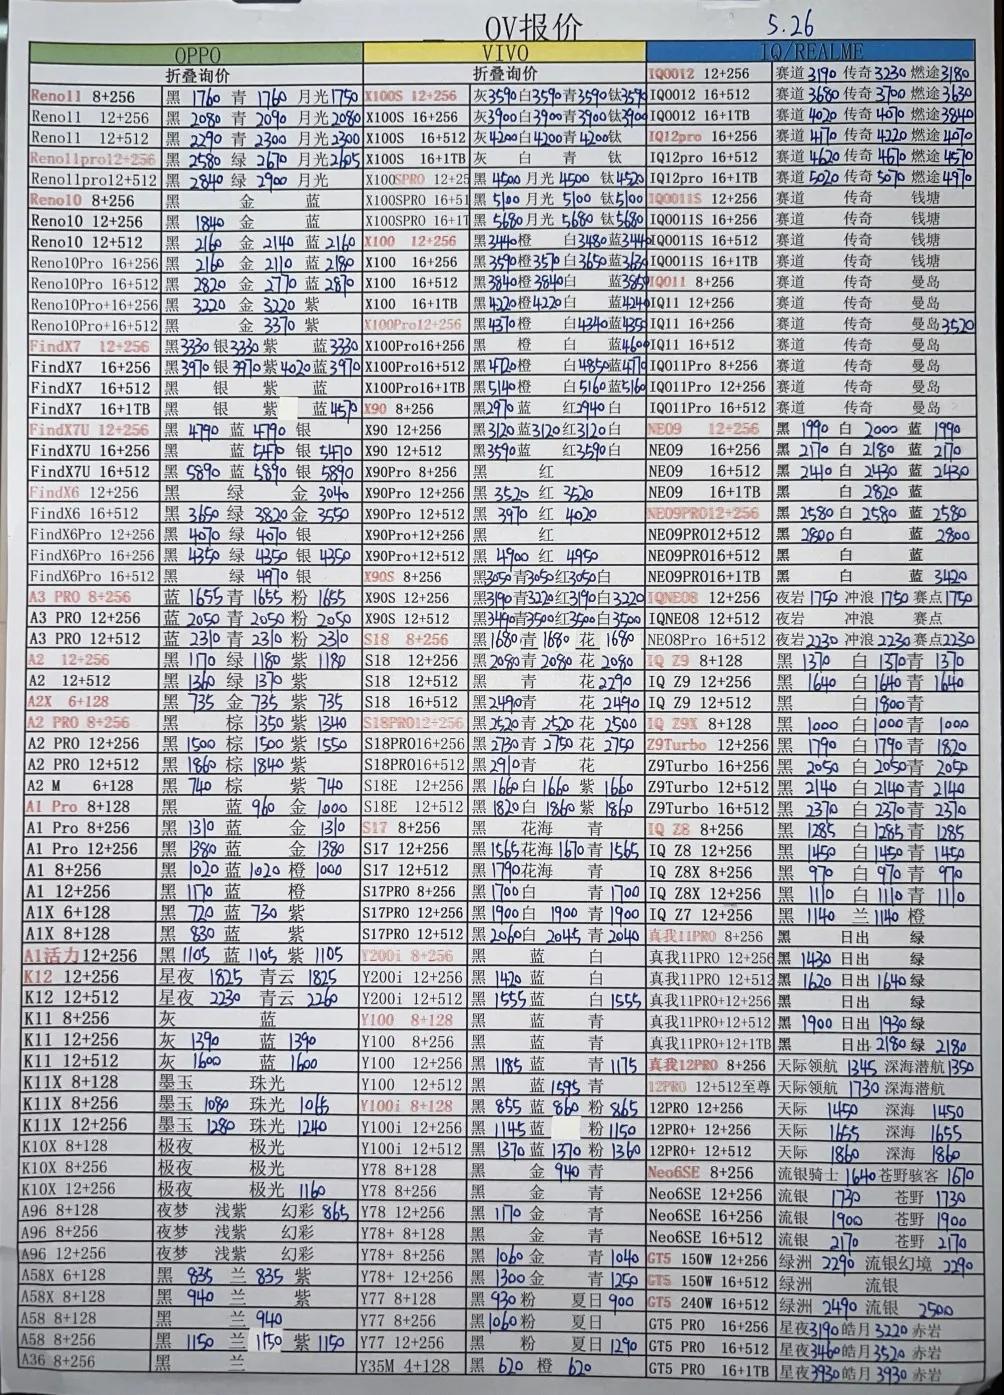 OV报价 5.26
OPPO VIVO IQ/REALME
折叠询价 折叠询价 IQOO12 12+256 赛道 3190 传奇 3230 燃途 3180
Reno11 8+256 黑 1760 青 1760 月光 1750 X100S 12+256 灰 3590 白 3590 青 3590 钛 3590 IQOO12 16+512 赛道 3680 传奇 3700 燃途 3630
Reno11 12+256 黑 2080 青 2090 月光 2080 X100S 16+256 灰 3900 白 3900 青 3900 钛 3900 IQOO12 16+1TB 赛道 4020 传奇 4070 燃途 3840
Reno11 12+512 黑 2290 青 2300 月光 2300 X100S 16+512 灰 4200 白 4200 青 4200 钛 IQ12pro 16+256 赛道 4170 传奇 4220 燃途 4070
Reno11pro12+256 黑 2580 绿 2670 月光 2605 X100S 16+1TB 灰 白 青 钛 IQ12pro 16+512 赛道 4620 传奇 4670 燃途 4570
Reno11pro12+512 黑 2840 绿 2900 月光 X100SPRO 12+25 黑 4500 月光 4500 钛 4520 IQ12pro 16+1TB 赛道 5020 传奇 5070 燃途 4970
Reno10 8+256 黑 金 蓝 X100SPRO 16+51 黑 5100 月光 5100 钛 5100 IQOO11S 12+256 赛道 传奇 钱塘
Reno10 12+256 黑 1840 金 蓝 X100SPRO 16+1T 黑 5680 月光 5680 钛 5680 IQOO11S 16+256 赛道 传奇 钱塘
Reno10 12+512 黑 2160 金 2140 蓝 2160 X100 12+256 黑 3440 橙 白 3480 蓝 3440 IQOO11S 16+512 赛道 传奇 钱塘
Reno10Pro 16+256 黑 2160 金 2110 蓝 2180 X100 16+256 黑 3590 橙 3570 白 3650 蓝 3630 IQOO11S 16+1TB 赛道 传奇 钱塘
Reno10Pro 16+512 黑 2820 金 2770 蓝 2870 X100 16+512 黑 3840 橙 3840 白 蓝 3850 IQO11 8+256 赛道 传奇 曼岛
Reno10Pro+16+256 黑 3220 金 3220 紫 X100 16+1TB 黑 4220 橙 4220 白 蓝 4240 IQ11 12+256 赛道 传奇 曼岛
Reno10Pro+16+512 黑 金 3370 紫 X100Pro12+256 黑 4370 橙 白 4340 蓝 4350 IQ11 16+256 赛道 传奇 曼岛 3520
FindX7 12+256 黑 3330 银 3330 紫 蓝 3330 X100Pro16+256 黑 橙 白 蓝 4600 IQ11 16+512 赛道 传奇 曼岛
FindX7 16+256 黑 3970 银 3970 紫 4020 蓝 3970 X100Pro16+512 黑 4720 橙 白 4850 蓝 4770 IQO11Pro 8+256 赛道 传奇 曼岛
FindX7 16+512 黑 银 紫 蓝 X100Pro16+1TB 黑 5140 橙 白 5160 蓝 5160 IQO11Pro 12+256 赛道 传奇 曼岛
FindX7 16+1TB 黑 银 紫 蓝 4570 X90 8+256 黑 2970 蓝 红 2940 白 IQO11Pro 16+512 赛道 传奇 曼岛
FindX7U 12+256 黑 4790 蓝 4790 银 X90 12+256 黑 3120 蓝 3120 红 3120 白 NEO9 12+256 黑 1990 白 2000 蓝 1990
FindX7U 16+256 黑 蓝 5470 银 5470 X90 12+512 黑 3590 蓝 红 3590 白 NEO9 16+256 黑 2170 白 2180 蓝 2170
FindX7U 16+512 黑 5890 蓝 5890 银 5890 X90Pro 8+256 黑 红 NEO9 16+512 黑 2410 白 2430 蓝 2430
FindX6 12+256 黑 绿 金 3040 X90Pro 12+256 黑 3520 红 3520 NEO9 16+1TB 黑 白 2820 蓝
FindX6 16+512 黑 3650 绿 3820 金 3550 X90Pro 12+512 黑 3970 红 4020 NEO9PRO12+256 黑 2580 白 2580 蓝 2580
FindX6Pro 12+256 黑 4070 绿 4070 银 X90Pro+12+256 黑 红 NEO9PRO12+512 黑 2800 白 蓝 2800
FindX6Pro 16+256 黑 4350 绿 4250 银 4350 X90Pro+12+512 黑 4900 红 4950 NEO9PRO16+512 黑 白 蓝
FindX6Pro 16+512 黑 绿 4970 银 X90S 8+256 黑 3050 青 3050 红 3050 白 NEO9PRO16+1TB 黑 白 蓝 3420
A3 PRO 8+256 蓝 1655 青 1655 粉 1655 X90S 12+256 黑 3190 青 3220 红 3190 白 3220 IQNEO8 12+256 夜岩 1750 冲浪 1750 赛点 1750
A3 PRO 12+256 蓝 2050 青 2050 粉 2050 X90S 12+512 黑 3490 青 3500 红 3500 白 3500 IQNEO8 12+512 夜岩 冲浪 赛点
A3 PRO 12+512 蓝 2310 青 2310 粉 2310 S18 8+256 黑 1680 青 1680 花 1680 NEO8Pro 16+512 夜岩 2230 冲浪 2230 赛点 2230
A2 12+256 黑 1170 绿 1180 紫 1180 S18 12+256 黑 2080 青 2080 花 2080 IQ Z9 8+128 黑 1370 白 1370 青 1370
A2 12+512 黑 1360 绿 1370 紫 S18 12+512 黑 青 花 2290 IQ Z9 12+256 黑 1640 白 1640 青 1640
A2X 6+128 黑 735 金 735 紫 735 S18 16+512 黑 2490 青 花 2490 IQ Z9 12+512 黑 白 1800 青
A2 PRO 8+256 黑 棕 1350 紫 1340 S18PRO12+256 黑 2520 青 2520 花 2500 IQ Z9X 8+128 黑 1000 白 1000 青 1000
A2 PRO 12+256 黑 1500 棕 1500 紫 1550 S18PRO16+256 黑 2730 青 2750 花 2750 Z9Turbo 12+256 黑 1790 白 1790 青 1820
A2 PRO 12+512 黑 1860 棕 1840 紫 S18PRO16+512 黑 2910 青 花 Z9Turbo 16+256 黑 2050 白 2050 青 2050
A2 M 6+128 黑 740 棕 紫 740 S18E 12+256 黑 1660 白 1660 紫 1660 Z9Turbo 12+512 黑 2140 白 2140 青 2140
A1 Pro 8+128 黑 蓝 960 金 1000 S18E 12+512 黑 1820 白 1860 紫 1860 Z9Turbo 16+512 黑 2370 白 2370 青 2370
A1 Pro 8+256 黑 1310 蓝 金 1310 S17 8+256 黑 花海 青 IQ Z8 8+256 黑 1285 白 1285 青 1285
A1 Pro 12+256 黑 1380 蓝 金 1380 S17 12+256 黑 1565 花海 1670 青 1565 IQ Z8 12+256 黑 1450 白 1450 青 1450
A1 8+256 黑 1020 蓝 1020 橙 1000 S17 12+512 黑 1790 花海 青 IQ Z8X 8+256 黑 970 白 970 青 970
A1 12+256 黑 1170 蓝 橙 S17PRO 8+256 黑 1700 白 青 1700 IQ Z8X 12+256 黑 1110 白 1110 青 1110
A1X 6+128 黑 720 蓝 730 紫 S17PRO 12+256 黑 1900 白 1900 青 1900 IQ Z7 12+256 黑 1140 兰 1140 橙
A1X 8+128 黑 830 蓝 紫 S17PRO 12+512 黑 2060 白 2045 青 2040 真我11PRO 8+256 黑 日出 绿
A1活力12+256 黑 1105 蓝 1105 紫 1105 Y200i 8+256 黑 蓝 白 真我11PRO 12+256 黑 1430 日出 绿
K12 12+256 星夜 1825 青云 1825 Y200i 12+256 黑 1420 蓝 白 真我11PRO 12+512 黑 1620 日出 1640 绿
K12 12+512 星夜 2230 青云 2260 Y200i 12+512 黑 1555 蓝 白 1555 真我11PRO+12+256 黑 日出 绿
K11 8+256 灰 蓝 Y100 8+128 黑 蓝 青 真我11PRO+12+512 黑 1900 日出 1930 绿
K11 12+256 灰 1390 蓝 1390 Y100 8+256 黑 蓝 青 真我11PRO+12+1TB 黑 日出 2180 绿 2180
K11 12+512 灰 1600 蓝 1600 Y100 12+256 黑 1185 蓝 青 1175 真我12PRO 8+256 天际领航 1345 深海潜航 1350
K11X 8+128 墨玉 珠光 Y100 12+512 黑 蓝 1595 青 12PRO 12+512至尊 天际领航 1730 深海潜航
K11X 8+256 墨玉 1080 珠光 1065 Y100i 8+128 黑 855 蓝 860 粉 865 12PRO 12+256 天际 1450 深海 1450
K11X 12+256 墨玉 1280 珠光 1240 Y100i 12+256 黑 1145 蓝 粉 1150 12PRO+ 12+256 天际 1655 深海 1655
K10X 8+128 极夜 极光 Y100i 12+512 黑 1370 蓝 1370 粉 1360 12PRO+ 12+512 天际 1860 深海 1860
K10X 8+256 极夜 极光 Y78 8+128 黑 金 940 青 Neo6SE 8+256 流银骑士 1640 苍野骇客 1670
K10X 12+256 极夜 极光 1160 Y78 8+256 黑 金 青 Neo6SE 12+256 流银 1730 苍野 1730
A96 8+128 夜梦 浅紫 幻彩 865 Y78 12+256 黑 1170 金 青 Neo6SE 16+256 流银 1900 苍野 1900
A96 8+256 夜梦 浅紫 幻彩 Y78+ 8+128 黑 金 青 Neo6SE 16+512 流银 2170 苍野 2170
A96 12+256 夜梦 浅紫 幻彩 Y78+ 8+256 黑 1060 金 青 1040 GT5 150W 12+256 绿洲 2290 流银幻境 2290
A58X 6+128 黑 835 兰 835 紫 Y78+ 12+256 黑 1300 金 青 1250 GT5 150W 16+512 绿洲 流银
A58X 8+128 黑 940 兰 紫 Y77 8+128 黑 930 粉 夏日 900 GT5 240W 16+512 绿洲 2490 流银 2500
A58 8+128 黑 兰 940 Y77 8+256 黑 1060 粉 夏日 GT5 PRO 16+256 星夜 3190 皓月 3220 赤岩
A58 8+256 黑 1150 兰 1150 紫 1150 Y77 12+256 黑 粉 夏日 1290 GT5 PRO 16+512 星夜 3460 皓月 3520 赤岩
A36 8+256 黑 兰 Y35M 4+128 黑 620 橙 620 GT5 PRO 16+1TB 星夜 3930 皓月 3930 赤岩